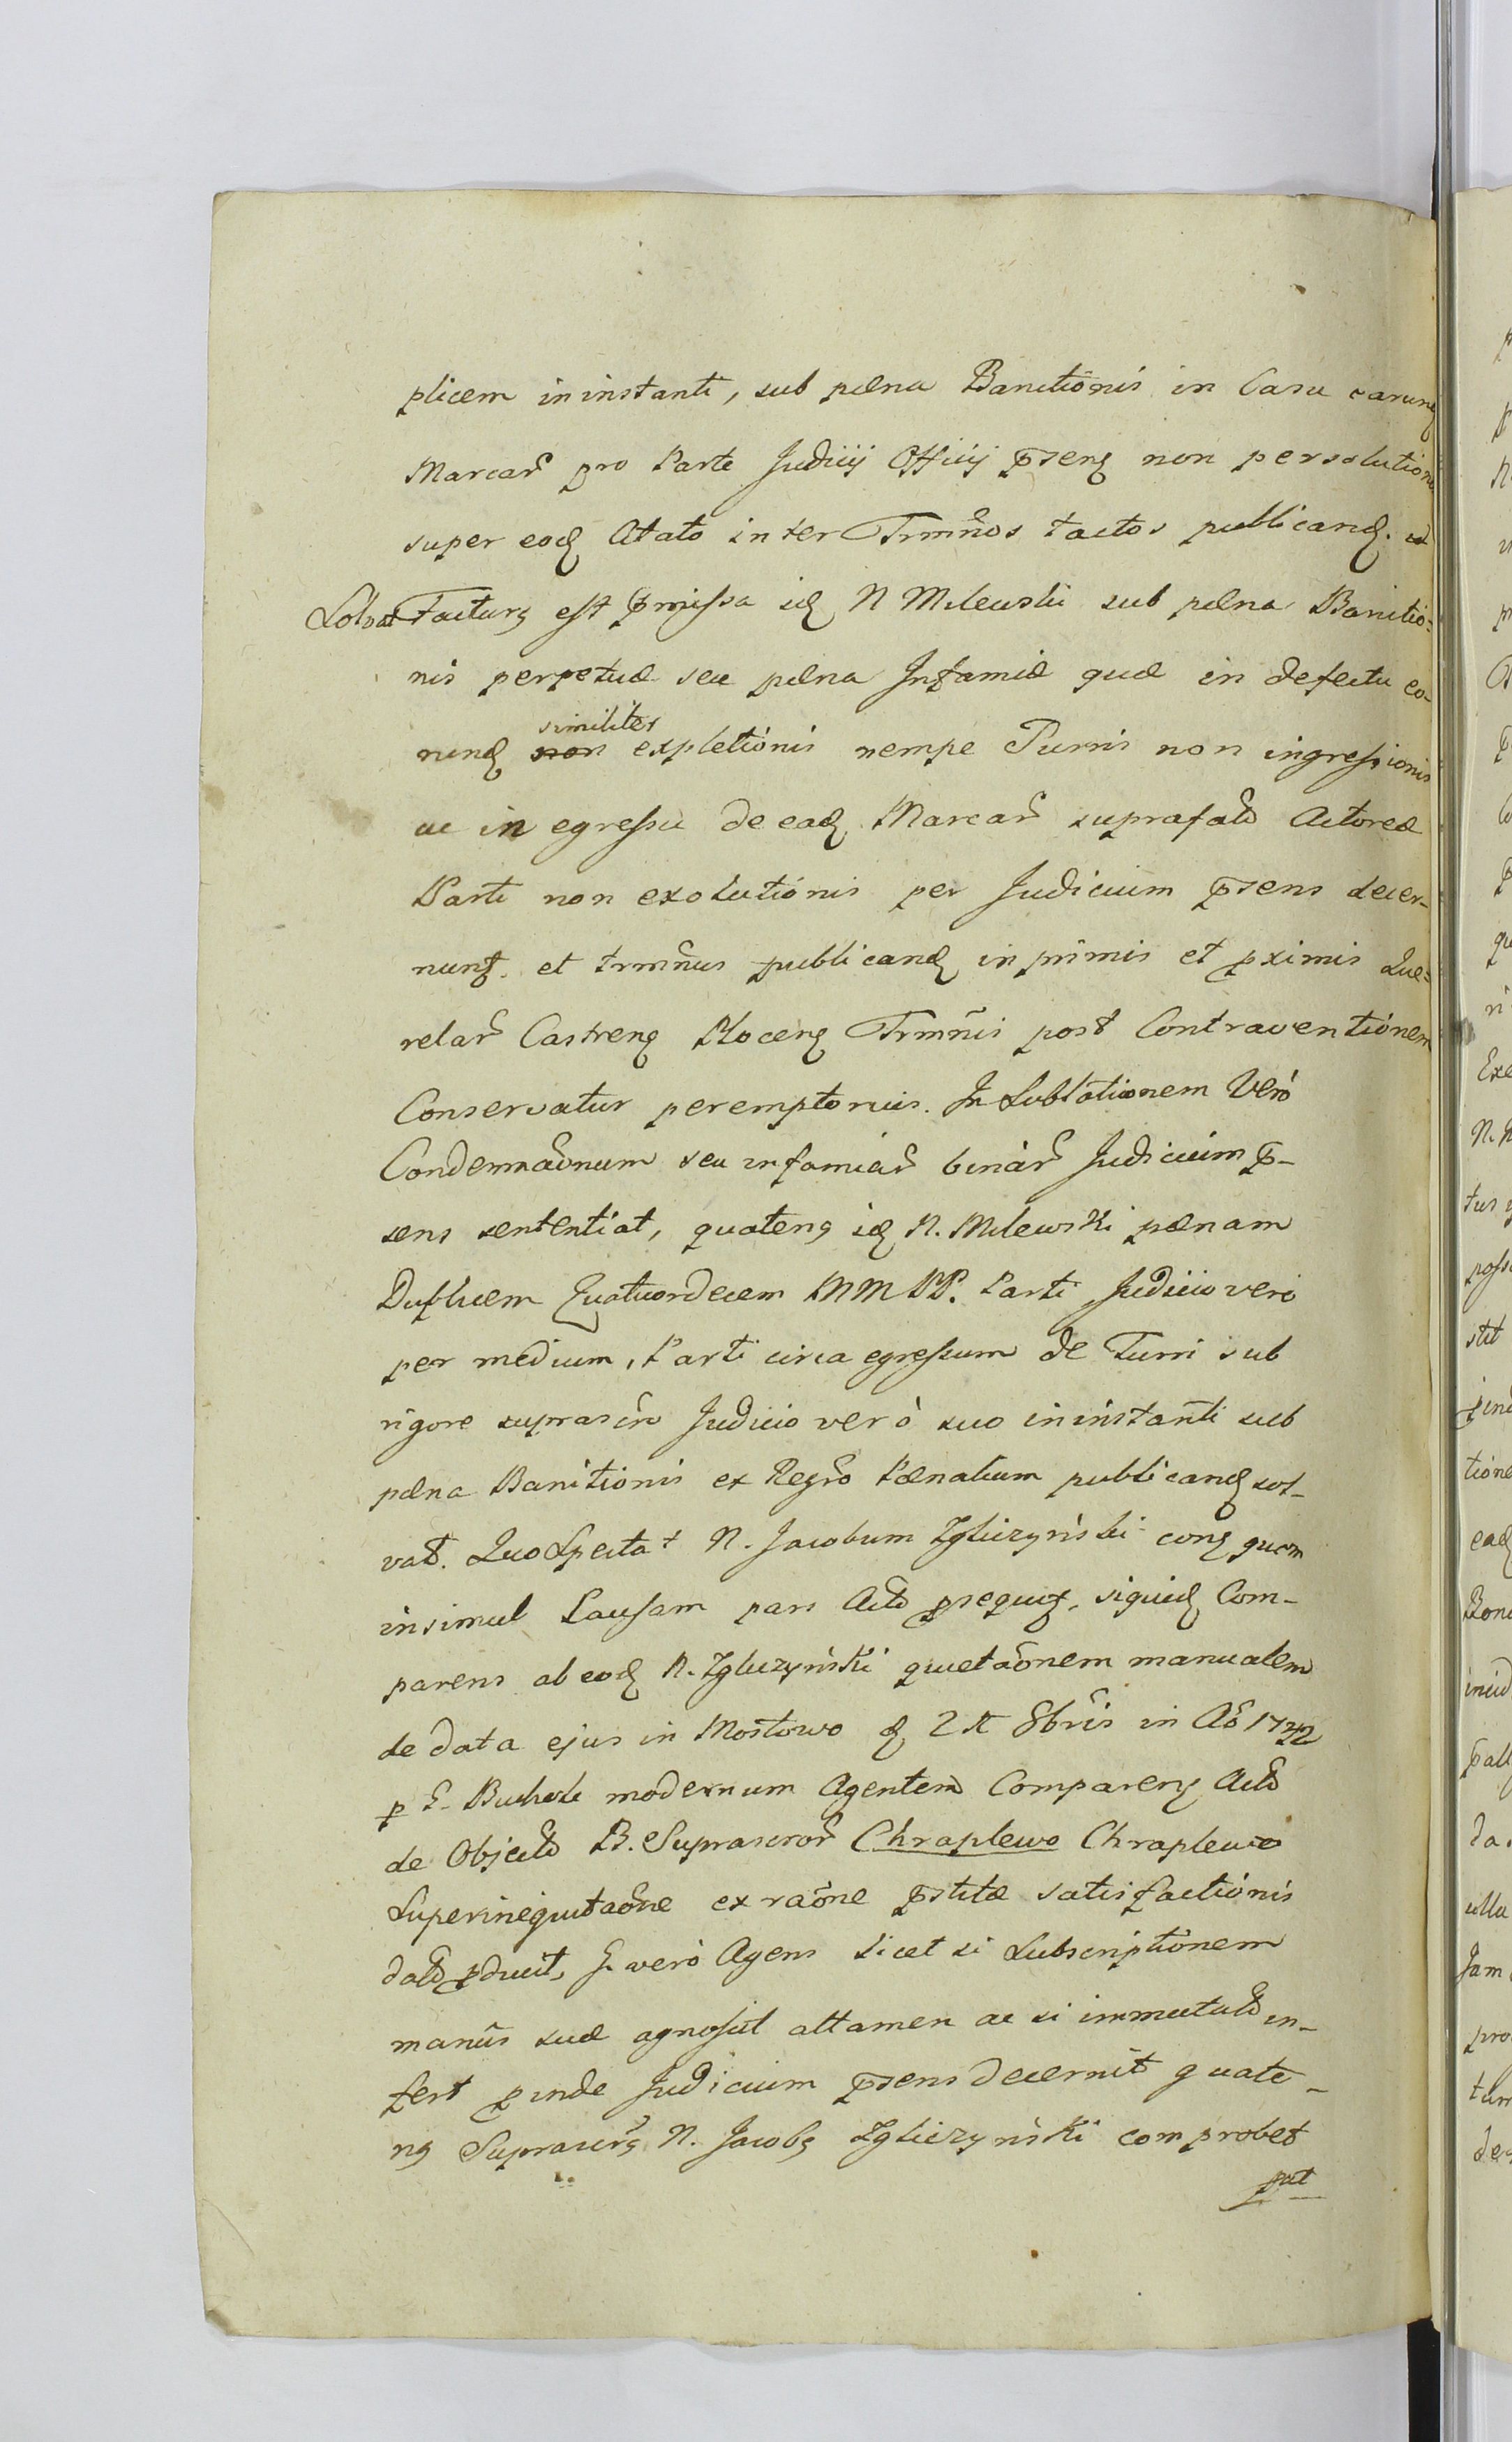 plicem in instanti, sub pæna Banitionis in Casu earunđ
Marcar̃ pro Parte Judicij Officij p̃senꝫ non persolutionis
super eođ Atato inter Trmños tactos publicanđ. et
Solvat Facturꝫ est p̃missa iđ N Milewski sub pæna Banitio=
nis perpetuæ seu pæna Infamiæ quæ in defectu eo-
similiter
runđ non expletionis nempe Turris non ingressionis
ac in egressu de eađ Marcar̃ suprafat̃ Actoreæ
Parti non exolutionis per Judicium p̃sens decer-
nunt. et trmñus publicanđ in primis et p̃ximis Que=
relar̃ Castrenꝫ Plocenꝫ Trmñis post Contraventionem
Conservatur peremptorius. In Sublationem Verò
Condemnaõnum seu infamiar̃ binar̃ Judicium p̃-
sens sententiat, quatenꝫ iđ N. Milewski pænam
Duplicem Quatuordecem MM PP. Parti Judicio vero
per medium, Parti circa egressum de Turri sub
rigore suprascr̃o Judicio verò suo in instanti sub
pæna Banitionis ex Regr̃o Pænalium publicanđ sol-
vat. Quo Spectat N. Jacobum Zgliczyński conꝫ quem
insimul Causam pars Act̃ p̃sequit, siquiđ Com-
parens ab eođ N. Zgliczyński quietaõnem manualem
de data ejus in Mostowo đ 2 8bris in Aõ 1732
p modernum Agentem Comparenꝫ Act̃
de Object̃ B. Suprascror̃ Chraplewo Chraplewo
Superinequitaõne ex raõne p̃stitæ satisfactionis
dat̃ p̃ducit, verò Agens licet si Subscriptionem
manûs suæ agnoscit attamen ac si immutat̃ in-
fert p̃inde Judicium p̃sens decernit quate-
nꝫ Suprascrꝫ N. Jacobꝫ Zgliczyński comprobet
put